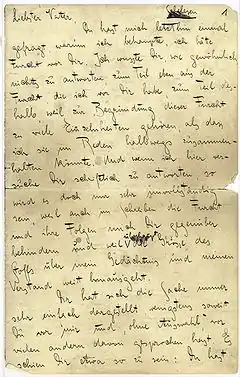 Schelesen 1
Liebster Vater,
Du hast mich letzthin einmal
gefragt, warum ich behaupte, ich hätte
Furcht vor Dir. Ich wusste Dir, wie gewöhnlich,
nichts zu antworten, zum Teil eben aus der
Furcht, die ich vor Dir habe, zum Teil des-
halb, weil zur Begründung dieser Furcht
zu viele Einzelnheiten gehören, als dass
ich sie im Reden halbwegs zusammen-
halten könnte. Und wenn ich hier ver-
suche Dir schriftlich zu antworten, so
wird es doch nur sehr unvollständig
sein, weil auch im Schreiben die Furcht
und ihre Folgen mich Dir gegenüber
behindern und weil Grösse des
Stoffs über mein Gedächtnis und meinen
Verstand weit hinausgeht.
Dir hat sich die Sache immer
sehr einfach dargestellt, wenigstens soweit
Du vor mir und, ohne Auswahl, vor
vielen andern davon gesprochen hast. Es
schien Dir etwa so zu sein: Du hast